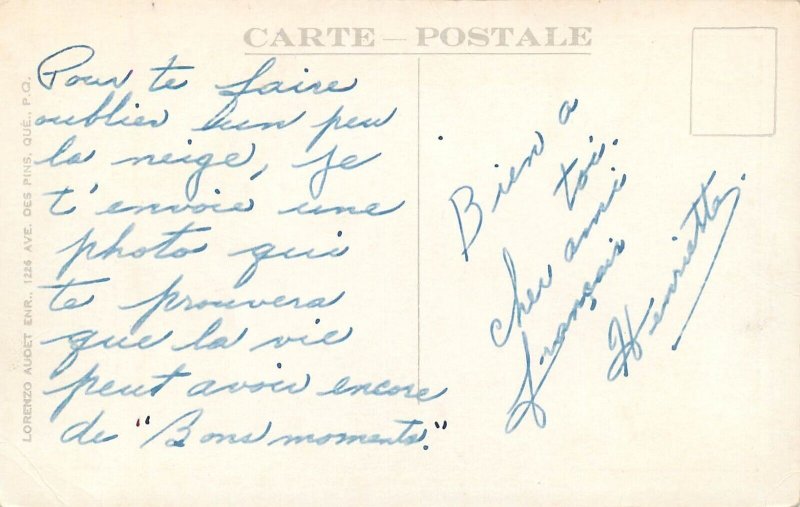 CARTE — POSTALE
Pour te faire
oublier un peu
la neige, je
t'envoie une
photo qui
te prouvera
que la vie
peut avoir encore
de "Bons moments."
Bien a
toi.
cher ami
français
Henriette.
LORENZO AUDET ENR., 1226 AVE. DES PINS, QUÉ. P.Q.